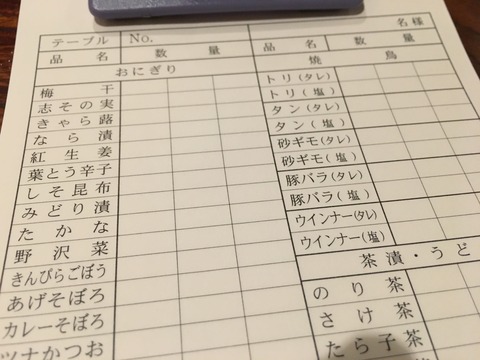 テーブル No. 名様
品名 数量 品名 数量
おにぎり
梅干
志その実
きゃら蕗
なら漬
紅生姜
葉とう辛子
しそ昆布
みどり漬
たかな
野沢菜
きんぴらごぼう
あげそぼろ
カレーそぼろ
ツナかつお
焼鳥
トリ(タレ)
トリ(塩)
タン(タレ)
タン(塩)
砂ギモ(タレ)
砂ギモ(塩)
豚バラ(タレ)
豚バラ(塩)
ウインナー(タレ)
ウインナー(塩)
茶漬・うど
のり茶
さけ茶
たら子茶